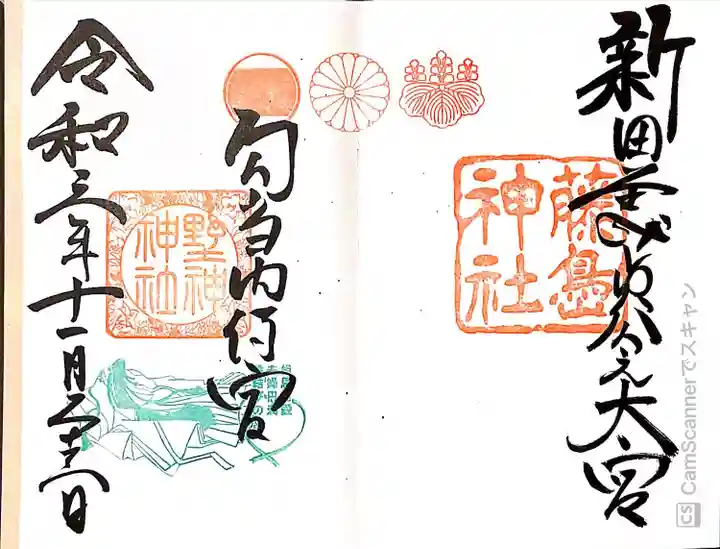 新田義貞公
大宮
藤島
神社
勾当内侍宮
野神
神社
令和三年十一月二十三日
CS CamScannerでスキャン